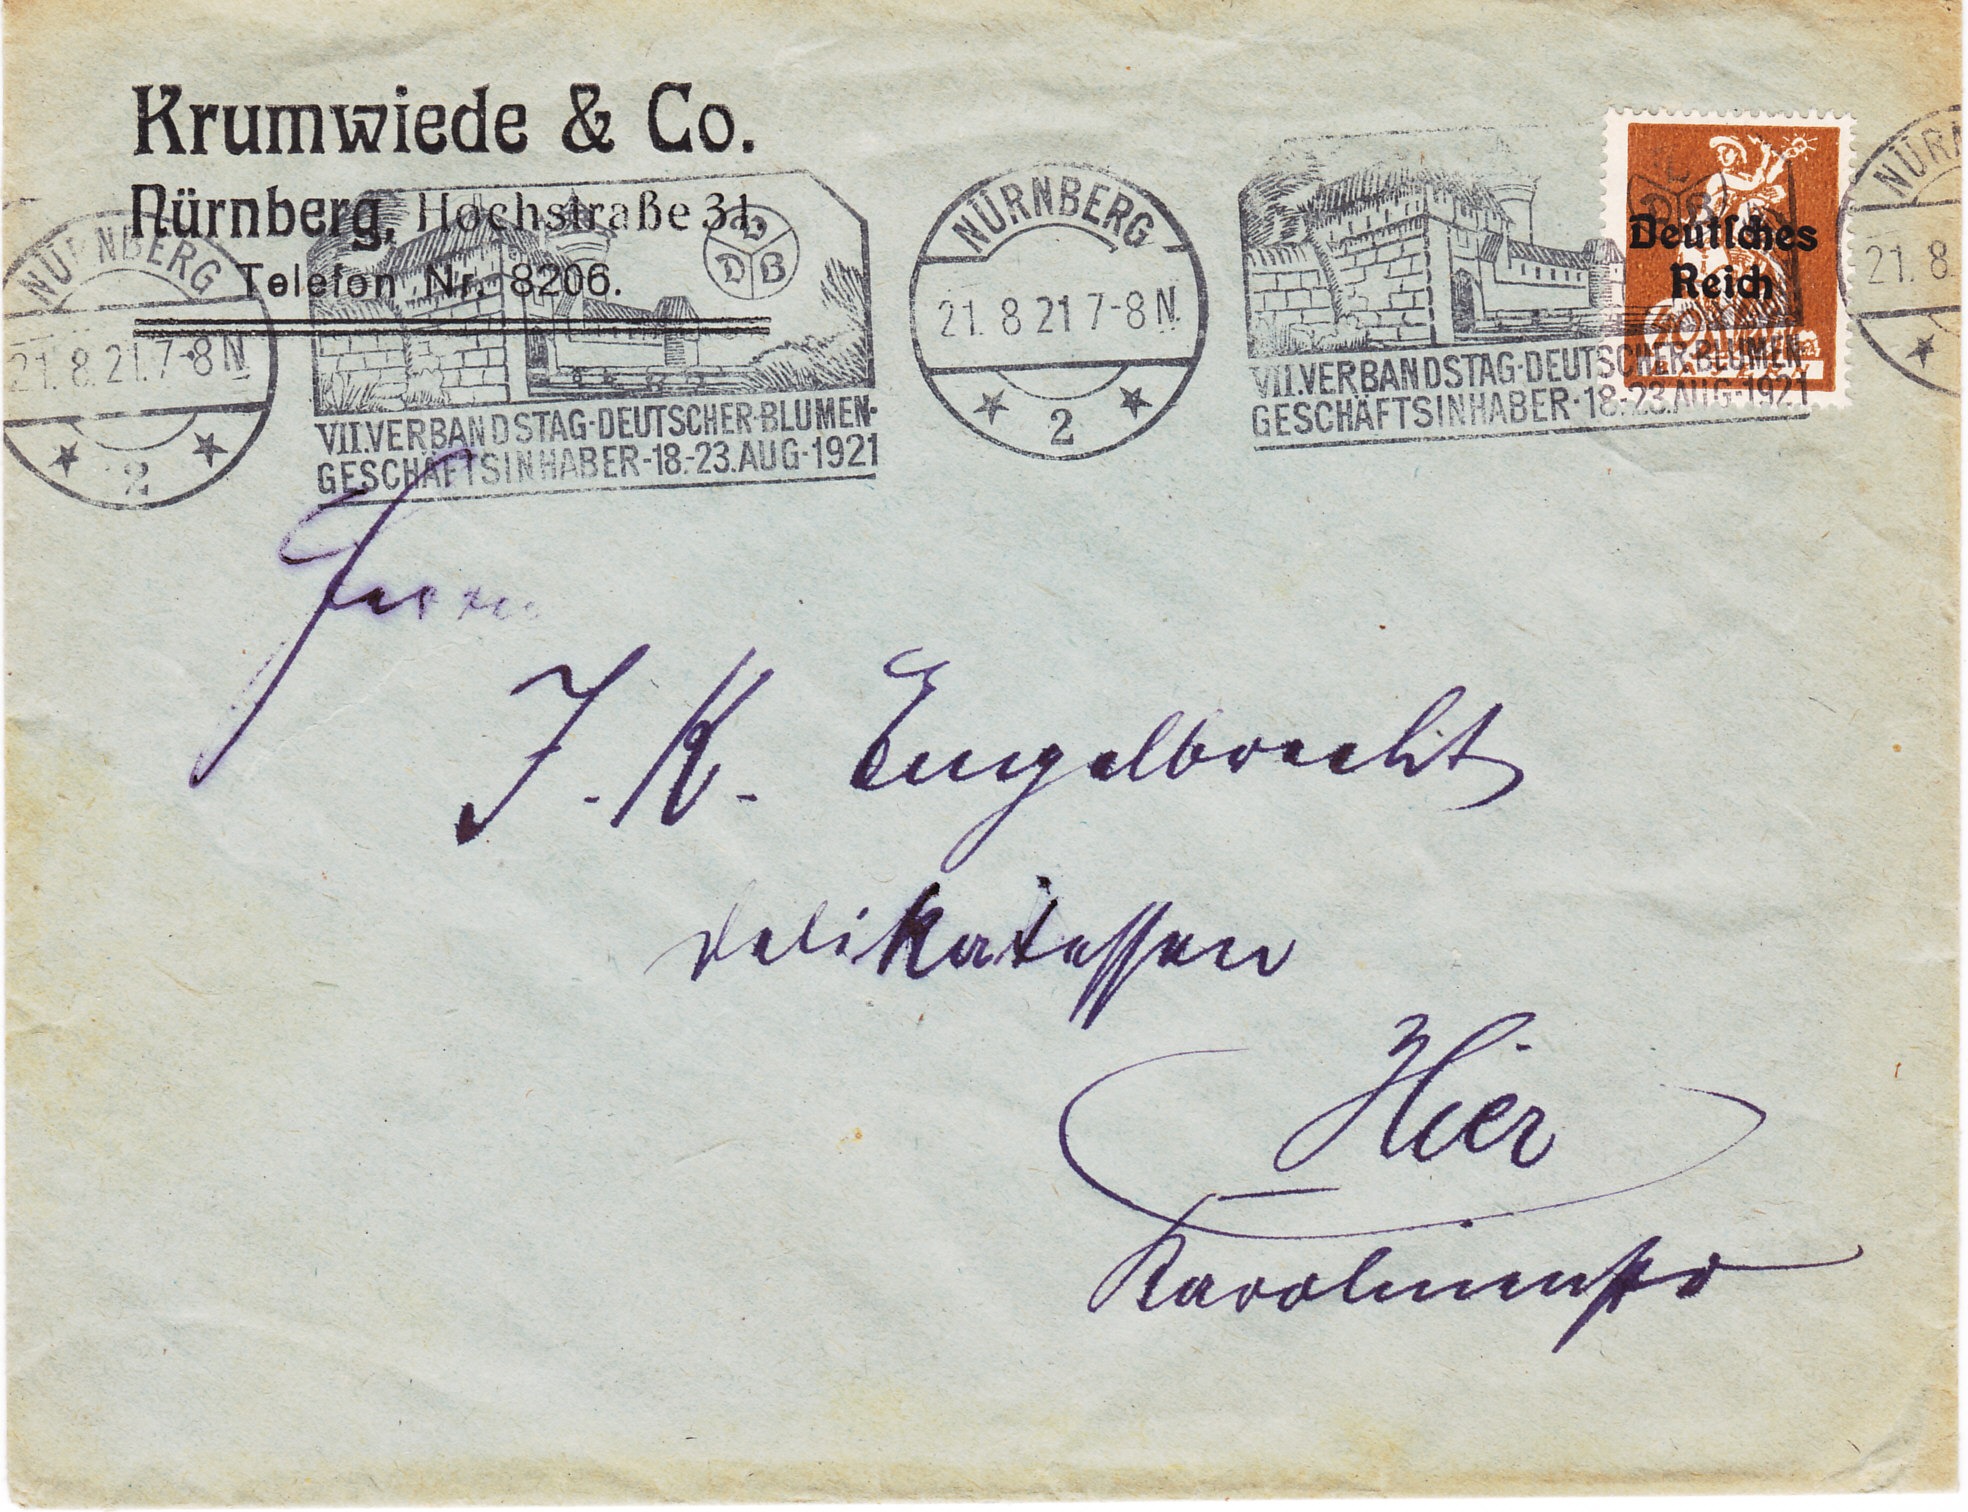 Krumwiede & Co.
Nürnberg, Hochstraße 31.
Telefon Nr. 8206.
NÜRNBERG
21.8.21.7-8N
2
VDB
VII.VERBANDSTAG-DEUTSCHER-BLUMEN-
GESCHÄFTSINHABER-18.-23.AUG-1921
NÜRNBERG
21.8 21 7-8N.
2
VII.VERBANDSTAG-DEUTSCHER-BLUMEN-
GESCHÄFTSINHABER-18.-23.AUG-1921
Deutsches
Reich
NÜRN
21.8
Herrn
J. K. Engelbrecht
Delikatessen
Hier
Karolinenstr